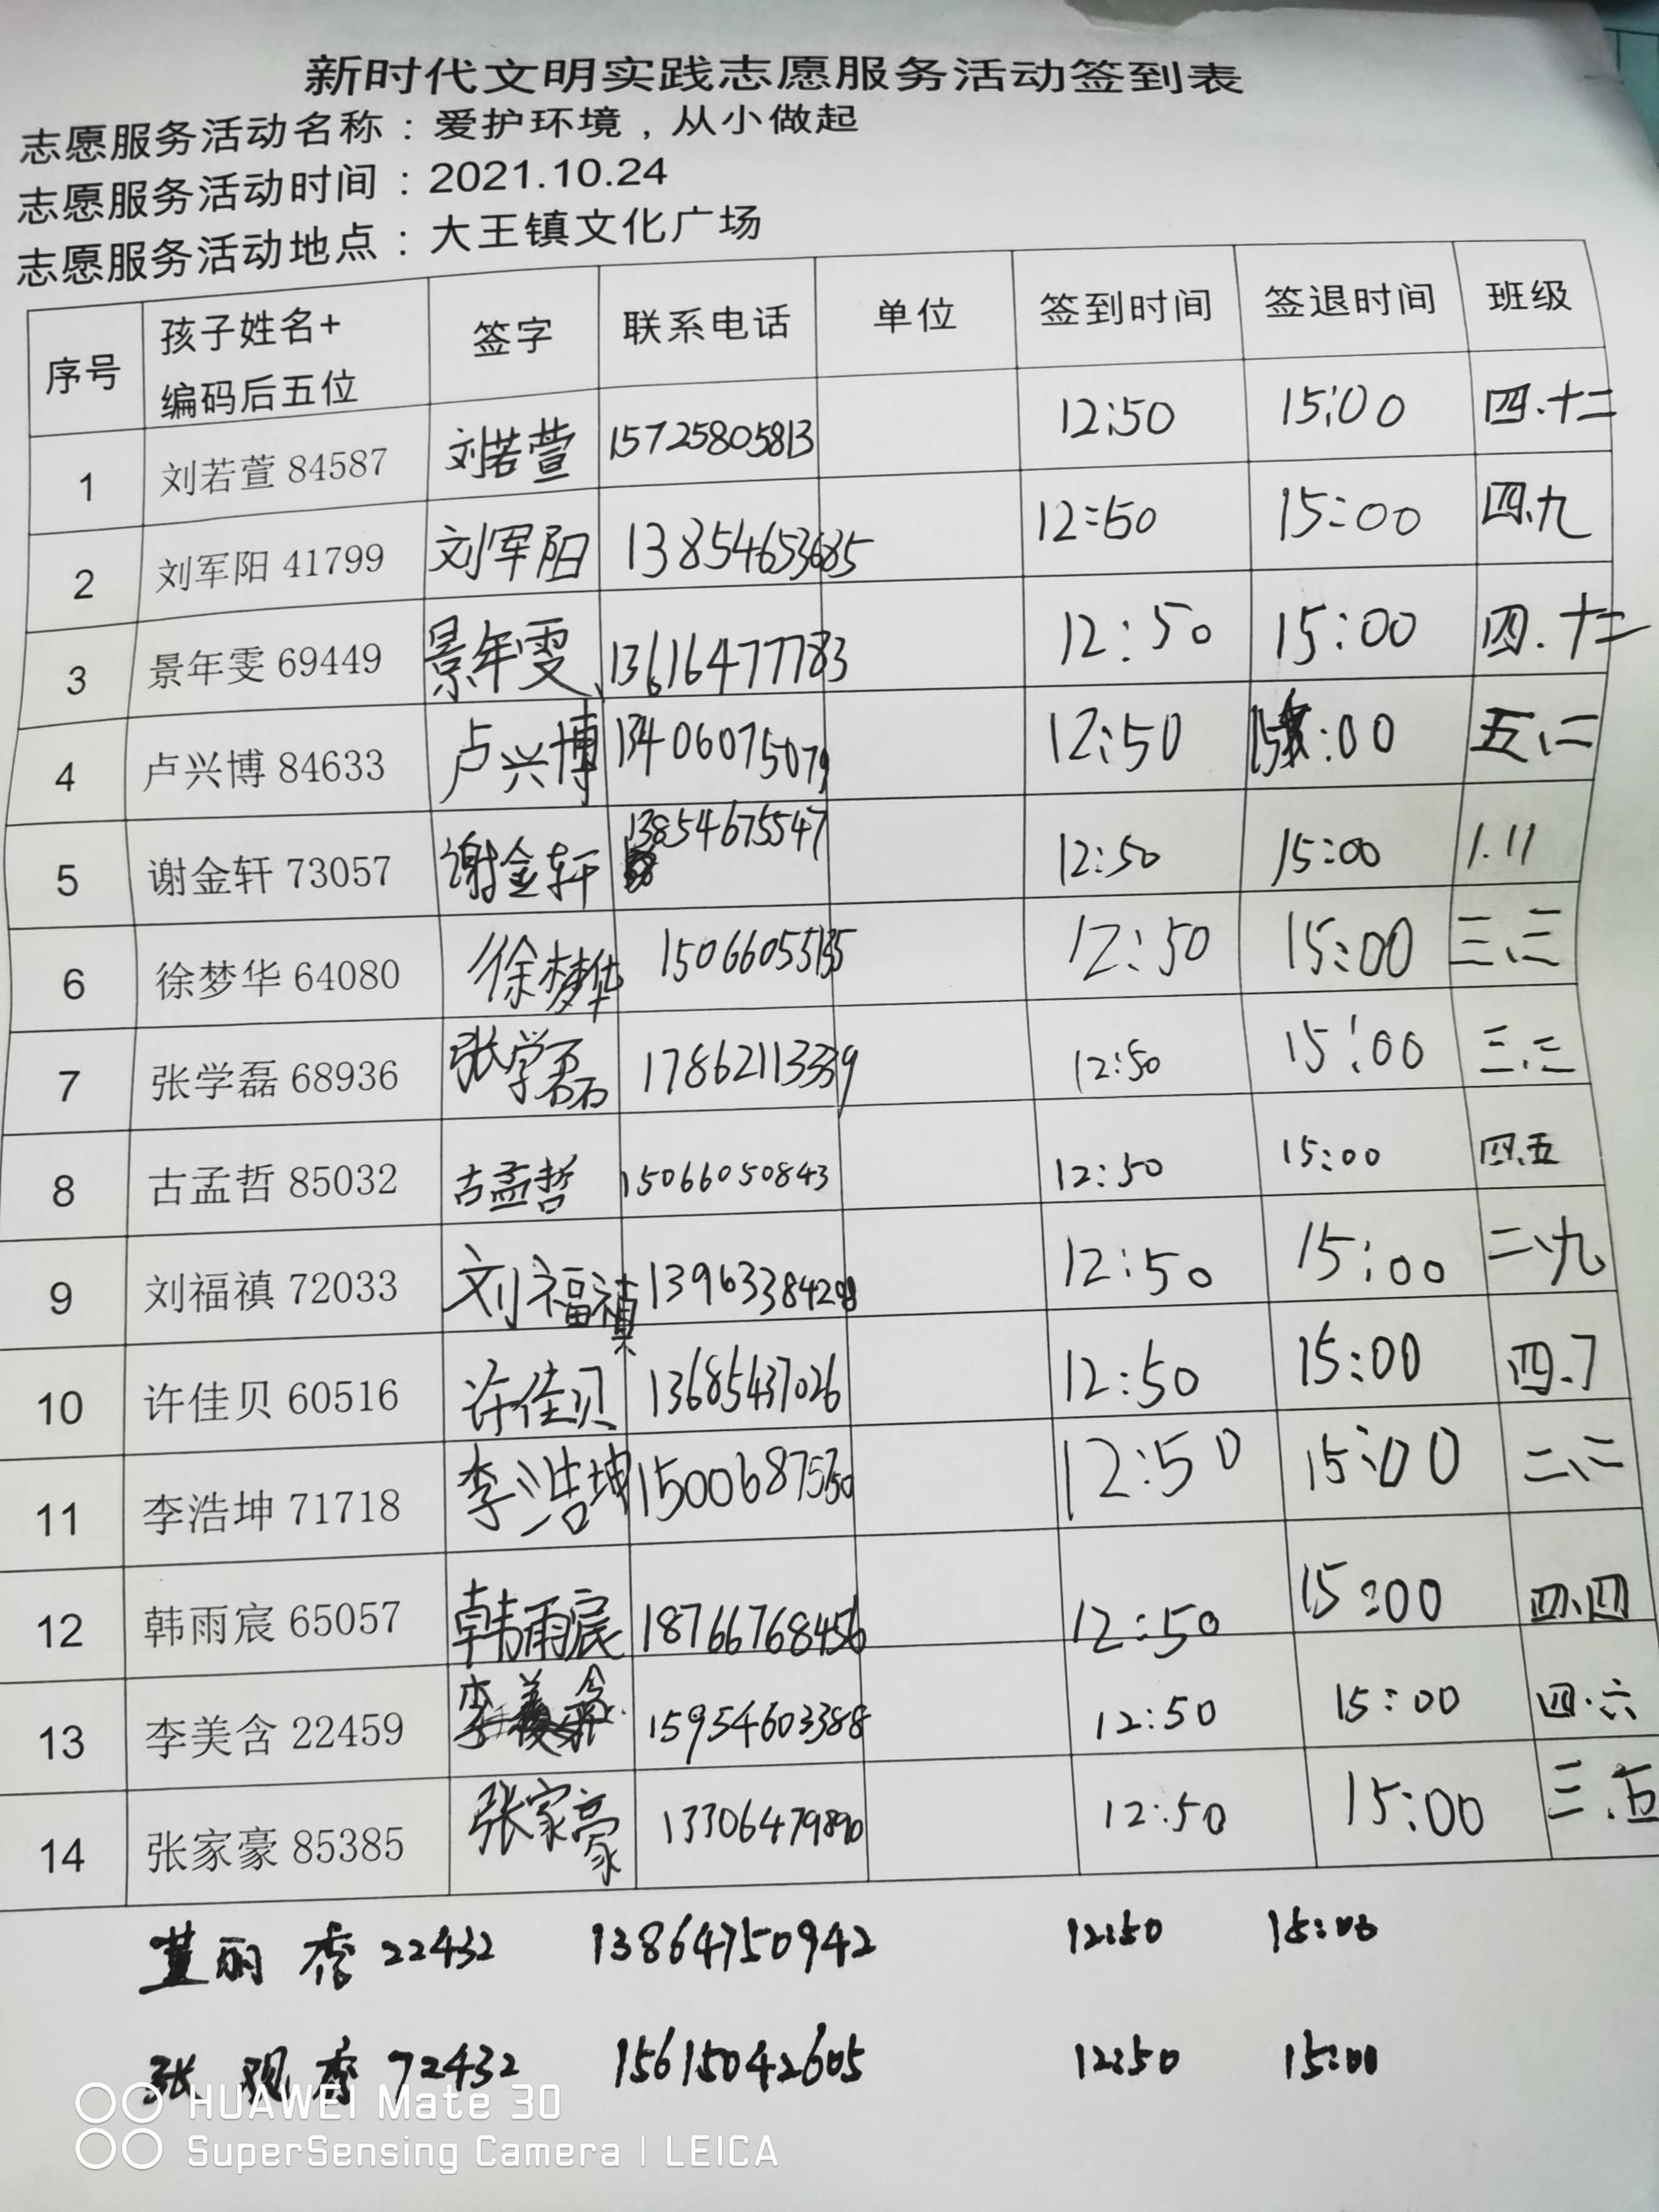 新时代文明实践志愿服务活动签到表
志愿服务活动名称：爱护环境，从小做起
志愿服务活动时间：2021.10.24
志愿服务活动地点：大王镇文化广场
序号 孩子姓名+编码后五位 签字 联系电话 单位 签到时间 签退时间 班级
1 刘若萱 84587 刘若萱 15725805813 12:50 15:00 四.十二
2 刘军阳 41799 刘军阳 13854653685 12:50 15:00 四.九
3 景年雯 69449 景年雯 13616477783 12:50 15:00 四.十二
4 卢兴博 84633 卢兴博 13406075079 12:50 15:00 五.二
5 谢金轩 73057 谢金轩 13854675547 12:50 15:00 1.11
6 徐梦华 64080 徐梦华 15066055135 12:50 15:00 三.三
7 张学磊 68936 张学磊 17862113339 12:50 15:00 三.三
8 古孟哲 85032 古孟哲 15066050843 12:50 15:00 四.五
9 刘福禛 72033 刘福禛 13963384298 12:50 15:00 二.九
10 许佳贝 60516 许佳贝 13685437026 12:50 15:00
11 李浩坤 71718 李浩坤 12:50 15:00 二.二
12 韩雨宸 65057 韩雨宸 18766768456 12:50 15:00 四.四
13 李美含 22459 李美含 15954603388 12:50 15:00 四.六
14 张家豪 85385 张家豪 13306479890 12:50 15:00 三.五
22432 13864750942 12:50 15:00
张观 72432 15615042605 12:50 15:00
HUAWEI Mate 30
SuperSensing Camera | LEICA